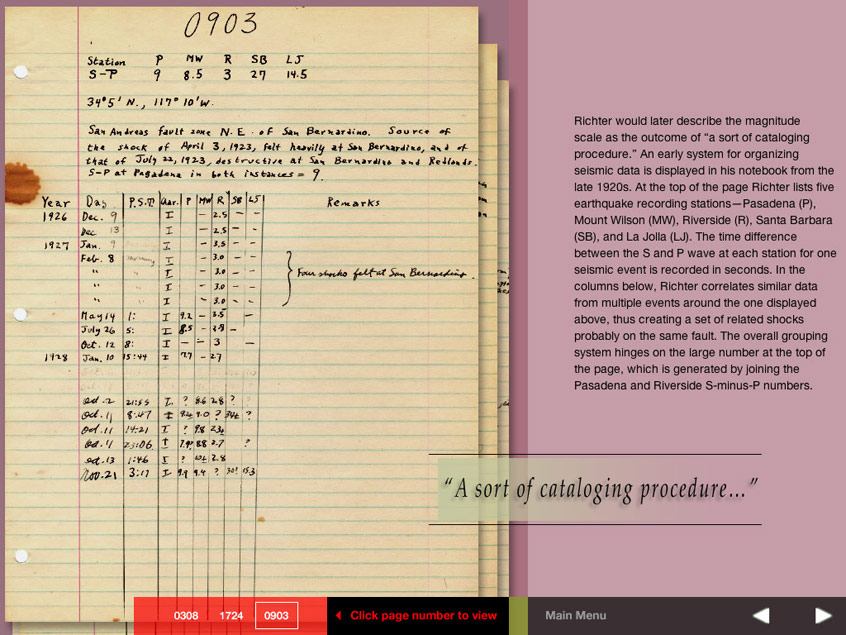 0903
Station P MW R SB LJ
S-P 9 8.5 3 27 14.5
34°5' N., 117° 10' W.
San Andreas fault zone N.E. of San Bernardino. Source of
the shock of April 3, 1923, felt heavily at San Bernardino, and of
that of July 22, 1923, destructive at San Bernardino and Redlands.
S-P at Pasadena in both instances = 9.
Year Day P.S.T. P MW R SB LJ Remarks
1926 Dec. 9 I - 2.5 - -
Dec 13 I - 2.5 - -
1927 Jan. 9 I - 3.5 - -
Febr. 8 I - 3.0 - -
" " I - 3.0 - - Four shocks felt at San Bernardino.
" " I - 3.0 - -
" " I - 3.0 - -
May 14 1: I 9.2 - 3.5 -
July 26 5: I 8.5 - -
Oct. 12 8: I - - 3 -
1928 Jan. 10 15:44 I - 2.7
Oct. 2 21:55 I ? 8.6 2.8 ?
Oct. 11 8:47 I 9.0 ? ?
Oct. 11 14:21 I ? 9.8
Oct. 11 23:06 I 8.8 2.7 ?
Oct. 13 1:46 I ? 2.8
Nov. 21 3:17 I 9.9 9.4 ? 30? 15.3
Richter would later describe the magnitude
scale as the outcome of “a sort of cataloging
procedure.” An early system for organizing
seismic data is displayed in his notebook from the
late 1920s. At the top of the page Richter lists five
earthquake recording stations—Pasadena (P),
Mount Wilson (MW), Riverside (R), Santa Barbara
(SB), and La Jolla (LJ). The time difference
between the S and P wave at each station for one
seismic event is recorded in seconds. In the
columns below, Richter correlates similar data
from multiple events around the one displayed
above, thus creating a set of related shocks
probably on the same fault. The overall grouping
system hinges on the large number at the top of
the page, which is generated by joining the
Pasadena and Riverside S-minus-P numbers.
“A sort of cataloging procedure...”
0308 1724 0903 Click page number to view Main Menu